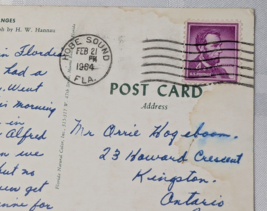 NGES
by H. W. Hannau
HOBE SOUND
FEB 21
PM
1964
FLA.
POST CARD
Address
in Florida
had a
went
is morning
in
Alfred
en we
but no
ven get
Mr Orrie Hogeboom.
23 Howard Crescent
Kingston.
Ontario